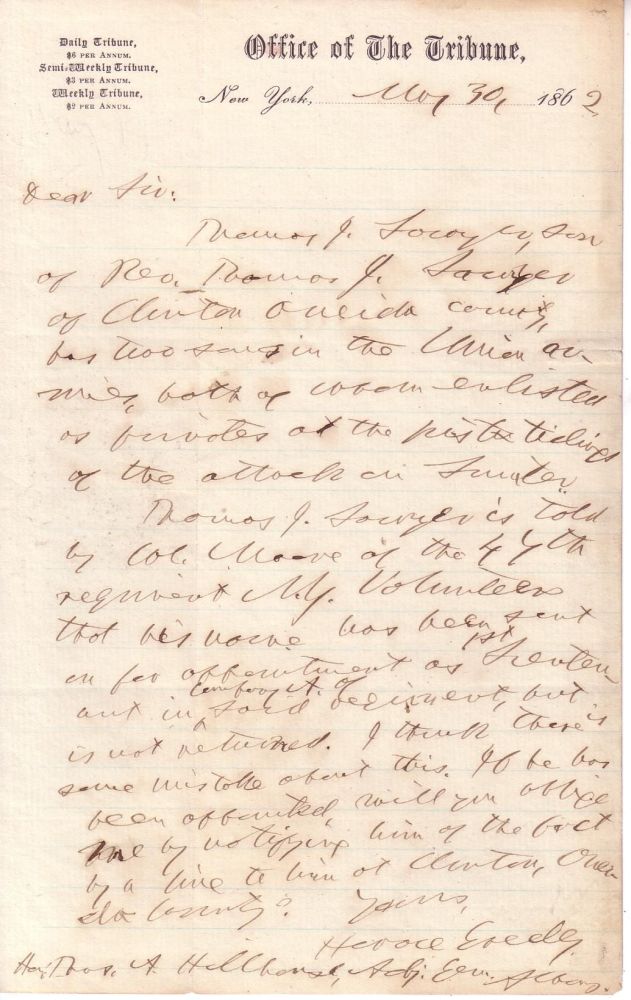 Daily Tribune,
$6 PER ANNUM.
Semi-Weekly Tribune,
$3 PER ANNUM.
Weekly Tribune,
$2 PER ANNUM.
Office of The Tribune,
New York, May 30, 1862
Dear Sir:
Thomas J. Sawyer, son
of Rev. Thomas J. Sawyer
of Clinton Oneida county,
has two sons in the Union ar-
mies, both of whom enlisted
as privates at the first tidings
of the attack on Sumter.
Thomas J. Sawyer is told
by Col. Moore of the 47th
regiment N.Y. Volunteers
that his name has been sent
on for appointment as 1st Lieuten-
ant in Company A. of said regiment, but is
is not returned. I think there
some mistake about this. If he has
been appointed, will you oblige
me by notifying him of the fact
by a line to him at Clinton, Onei-
da County? Yours,
Horace Greeley.
Hon. Thos. A Hillhouse, Adj. Gen. Albany.